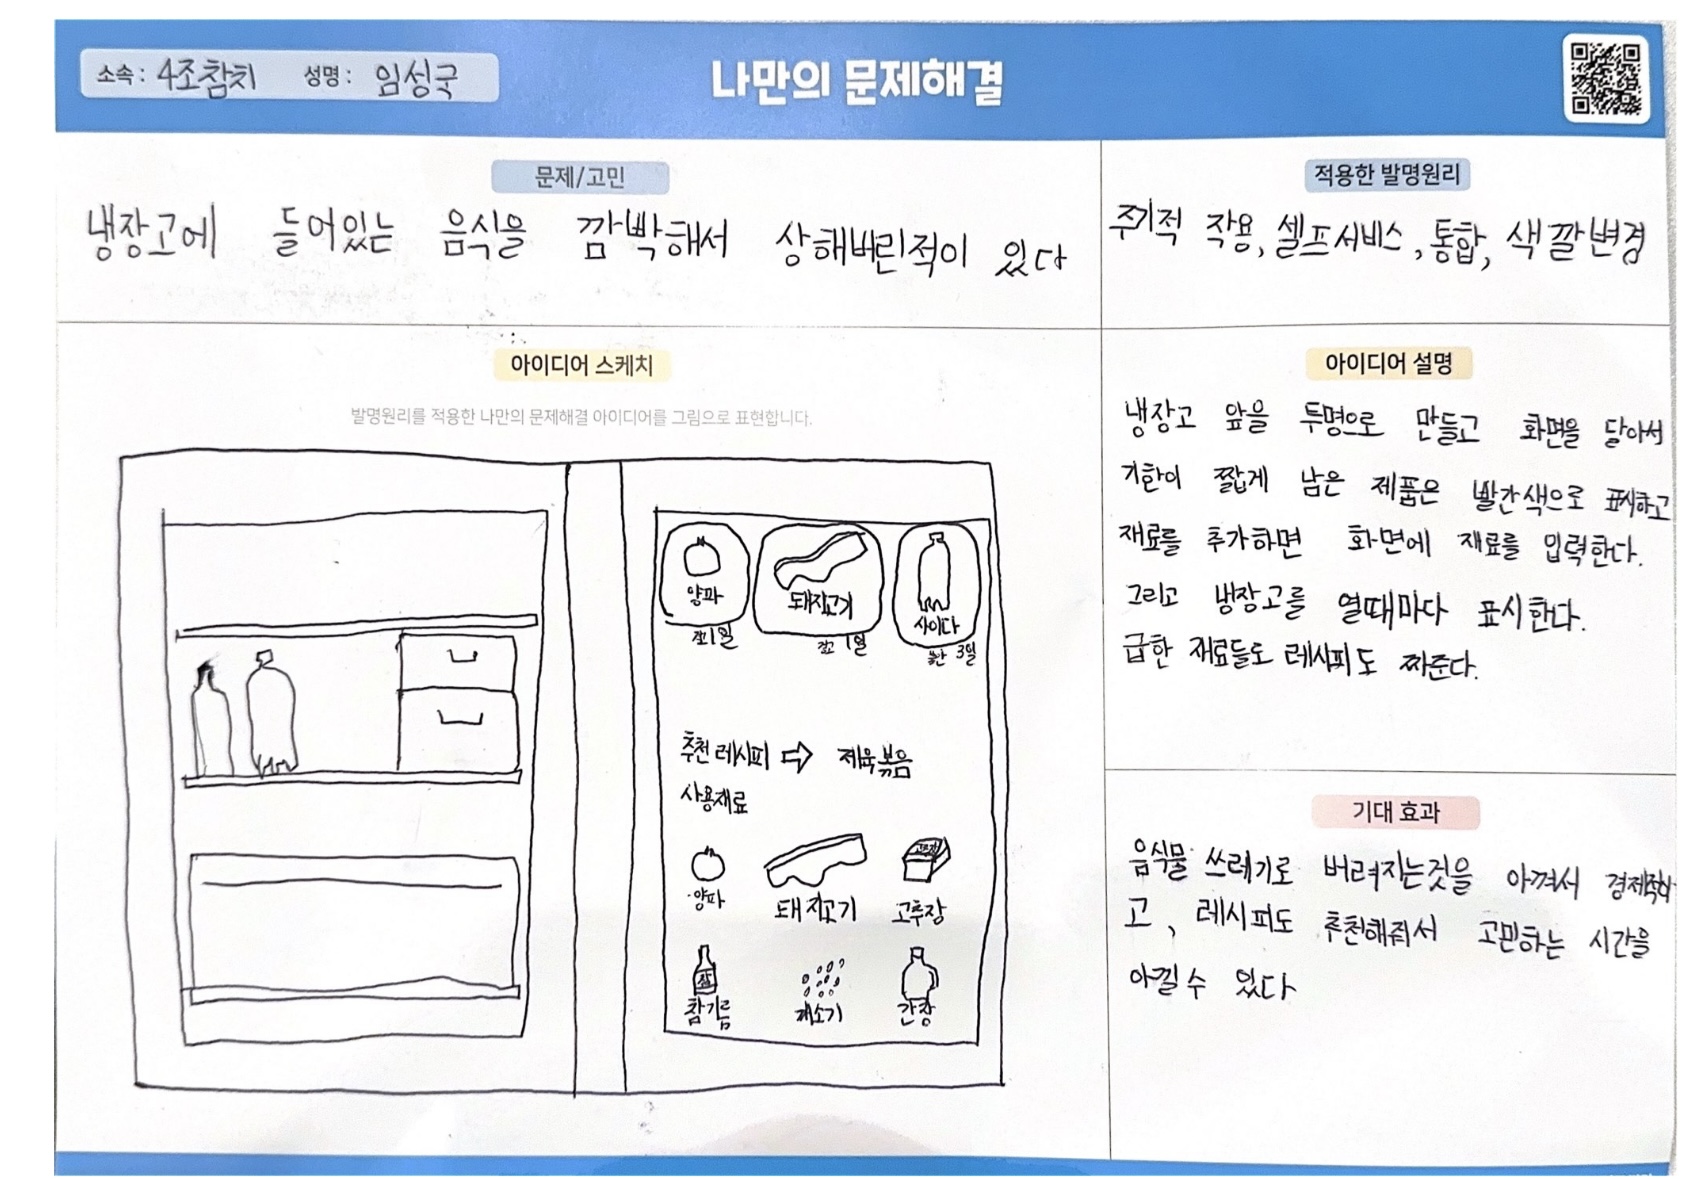 소속 : 4조참치 성명 : 임성국
나만의 문제해결
문제/고민
냉장고에 들어있는 음식을 깜박해서 상해버린적이 있다
적용한 발명원리
주기적 작용, 셀프서비스, 통합, 색깔변경
아이디어 스케치
발명원리를 적용한 나만의 문제해결 아이디어를 그림으로 표현합니다.
양파 돼지고기 사이다
1일 1일 3일
추천 레시피 ⇨ 제육볶음
사용재료
고추장
양파 돼지고기 고추장
참
참기름 깨소기 간장
아이디어 설명
냉장고 앞을 투명으로 만들고 화면을 달아서
기한이 짧게 남은 제품은 빨간색으로 표시하고
재료를 추가하면 화면에 재료를 입력한다.
그리고 냉장고를 열때마다 표시한다.
급한 재료들도 레시피도 짜준다.
기대 효과
음식물 쓰레기로 버려지는것을 아껴서 경제적이
고, 레시피도 추천해줘서 고민하는 시간을
아낄수 있다